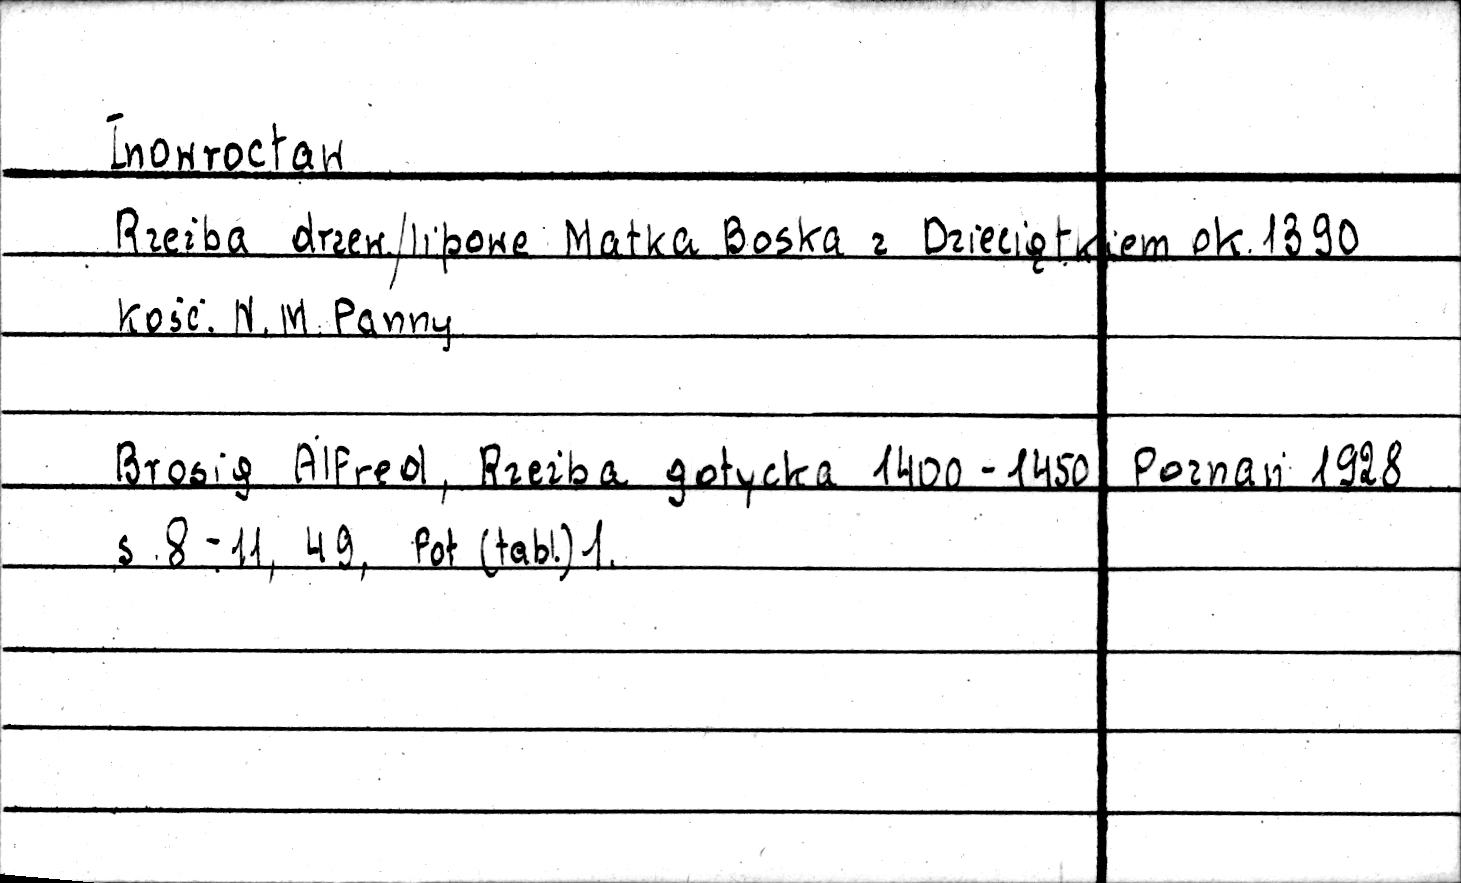 Inowrocław
Rzeźba drzew./lipowe Matka Boska z Dzieciątkiem ok. 1390
kość. N. M. Panny
Brosig Alfred, Rzeźba gotycka 1400-1450 Poznań 1928
s. 8-11, 49, fot (tabl.) 1.